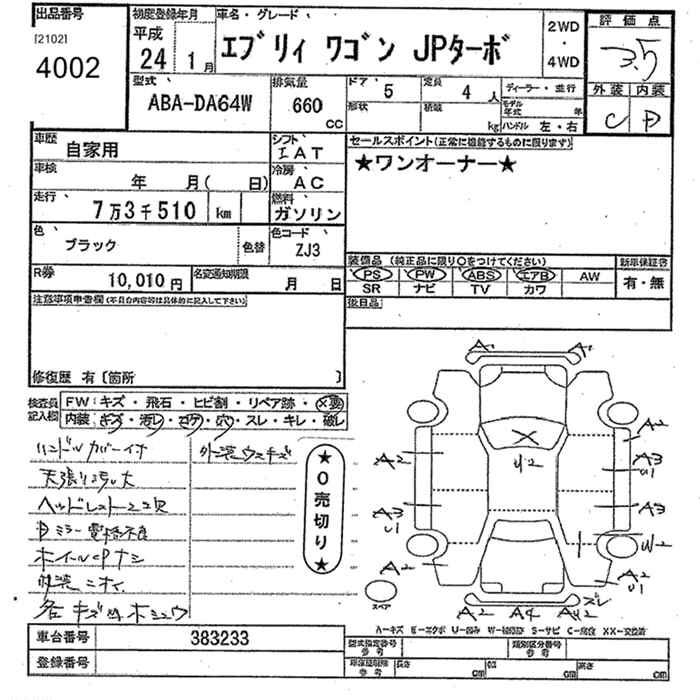 出品番号 初度登録年月 車名・グレード、 評価点
[2102] 平成 2WD
4002 24 1月 エブリィ ワゴン JPターボ ・ 3.5
4WD
型式、 排気量 ドア、 5 定員 4人 ディーラー・並行 外装 内装
ABA-DA64W 660 cc 形状 積載 kg モデル年式 年 C D
ハンドル 左・右
車歴 自家用 シフト IAT セールスポイント(正常に機能するものに限ります)
車検 年 月( 日) 冷房 AC ★ワンオーナー★
走行、 7万3千510 km 燃料 ガソリン
色、 ブラック 色替 色コード ZJ3
装備品 (純正品に限り○をつけてください) 新車保証書
R券 10,010円 名変通知期限 月 日 PS PW ABS エアB AW 有・無
SR ナビ TV カワ
注意事項申告欄(車両自内容等は具体的に記入して下さい) 後日品
修復歴 有〔箇所 〕
検査員記入欄 FW:キズ・飛石・ヒビ割・リペア跡・X要
内装:キズ・汚レ・コゲ・穴・スレ・キレ・破レ
ハンドルカバー付 外装ウスキズ
ヘッドレスト
ミラー電格不良
ホイールCPナシ
★0売切り★
A1 A1
A2 A2
U2 A3 U1
A3 U1 A3
W2
A2 A2 U1
スペア A2 A4 AU2 ズレ
A-キズ E-エクボ U-凹み W-補修跡 S-サビ C-腐食 XX-交換済
車台番号 383233 型式指定番号 参考 類別区分番号 参考
登録番号 車体型類規 参考 長さ cm 幅 cm 高さ cm